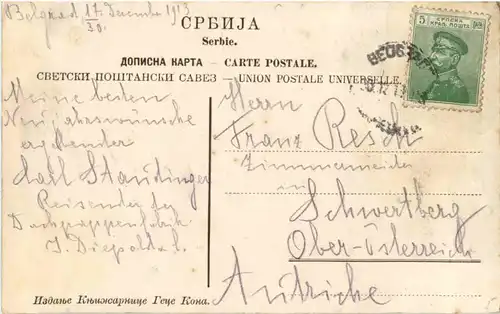 Belgrad 17. Dezember 1913
30.
СРБИЈА
Serbie.
ДОПИСНА КАРТА — CARTE POSTALE.
СВЕТСКИ ПОШТАНСКИ САВЕЗ — UNION POSTALE UNIVERSELLE.
5
БЕОГРАД
Meine besten
Neujahrswünsche
Karl Staudinger
Reisender der
Dachpappenfabrik
Herrn
Franz Resch
Zimmermeister
in
Schwertberg
Ober-Österreich
Autriche
Издање Књижарнице Геце Кона.